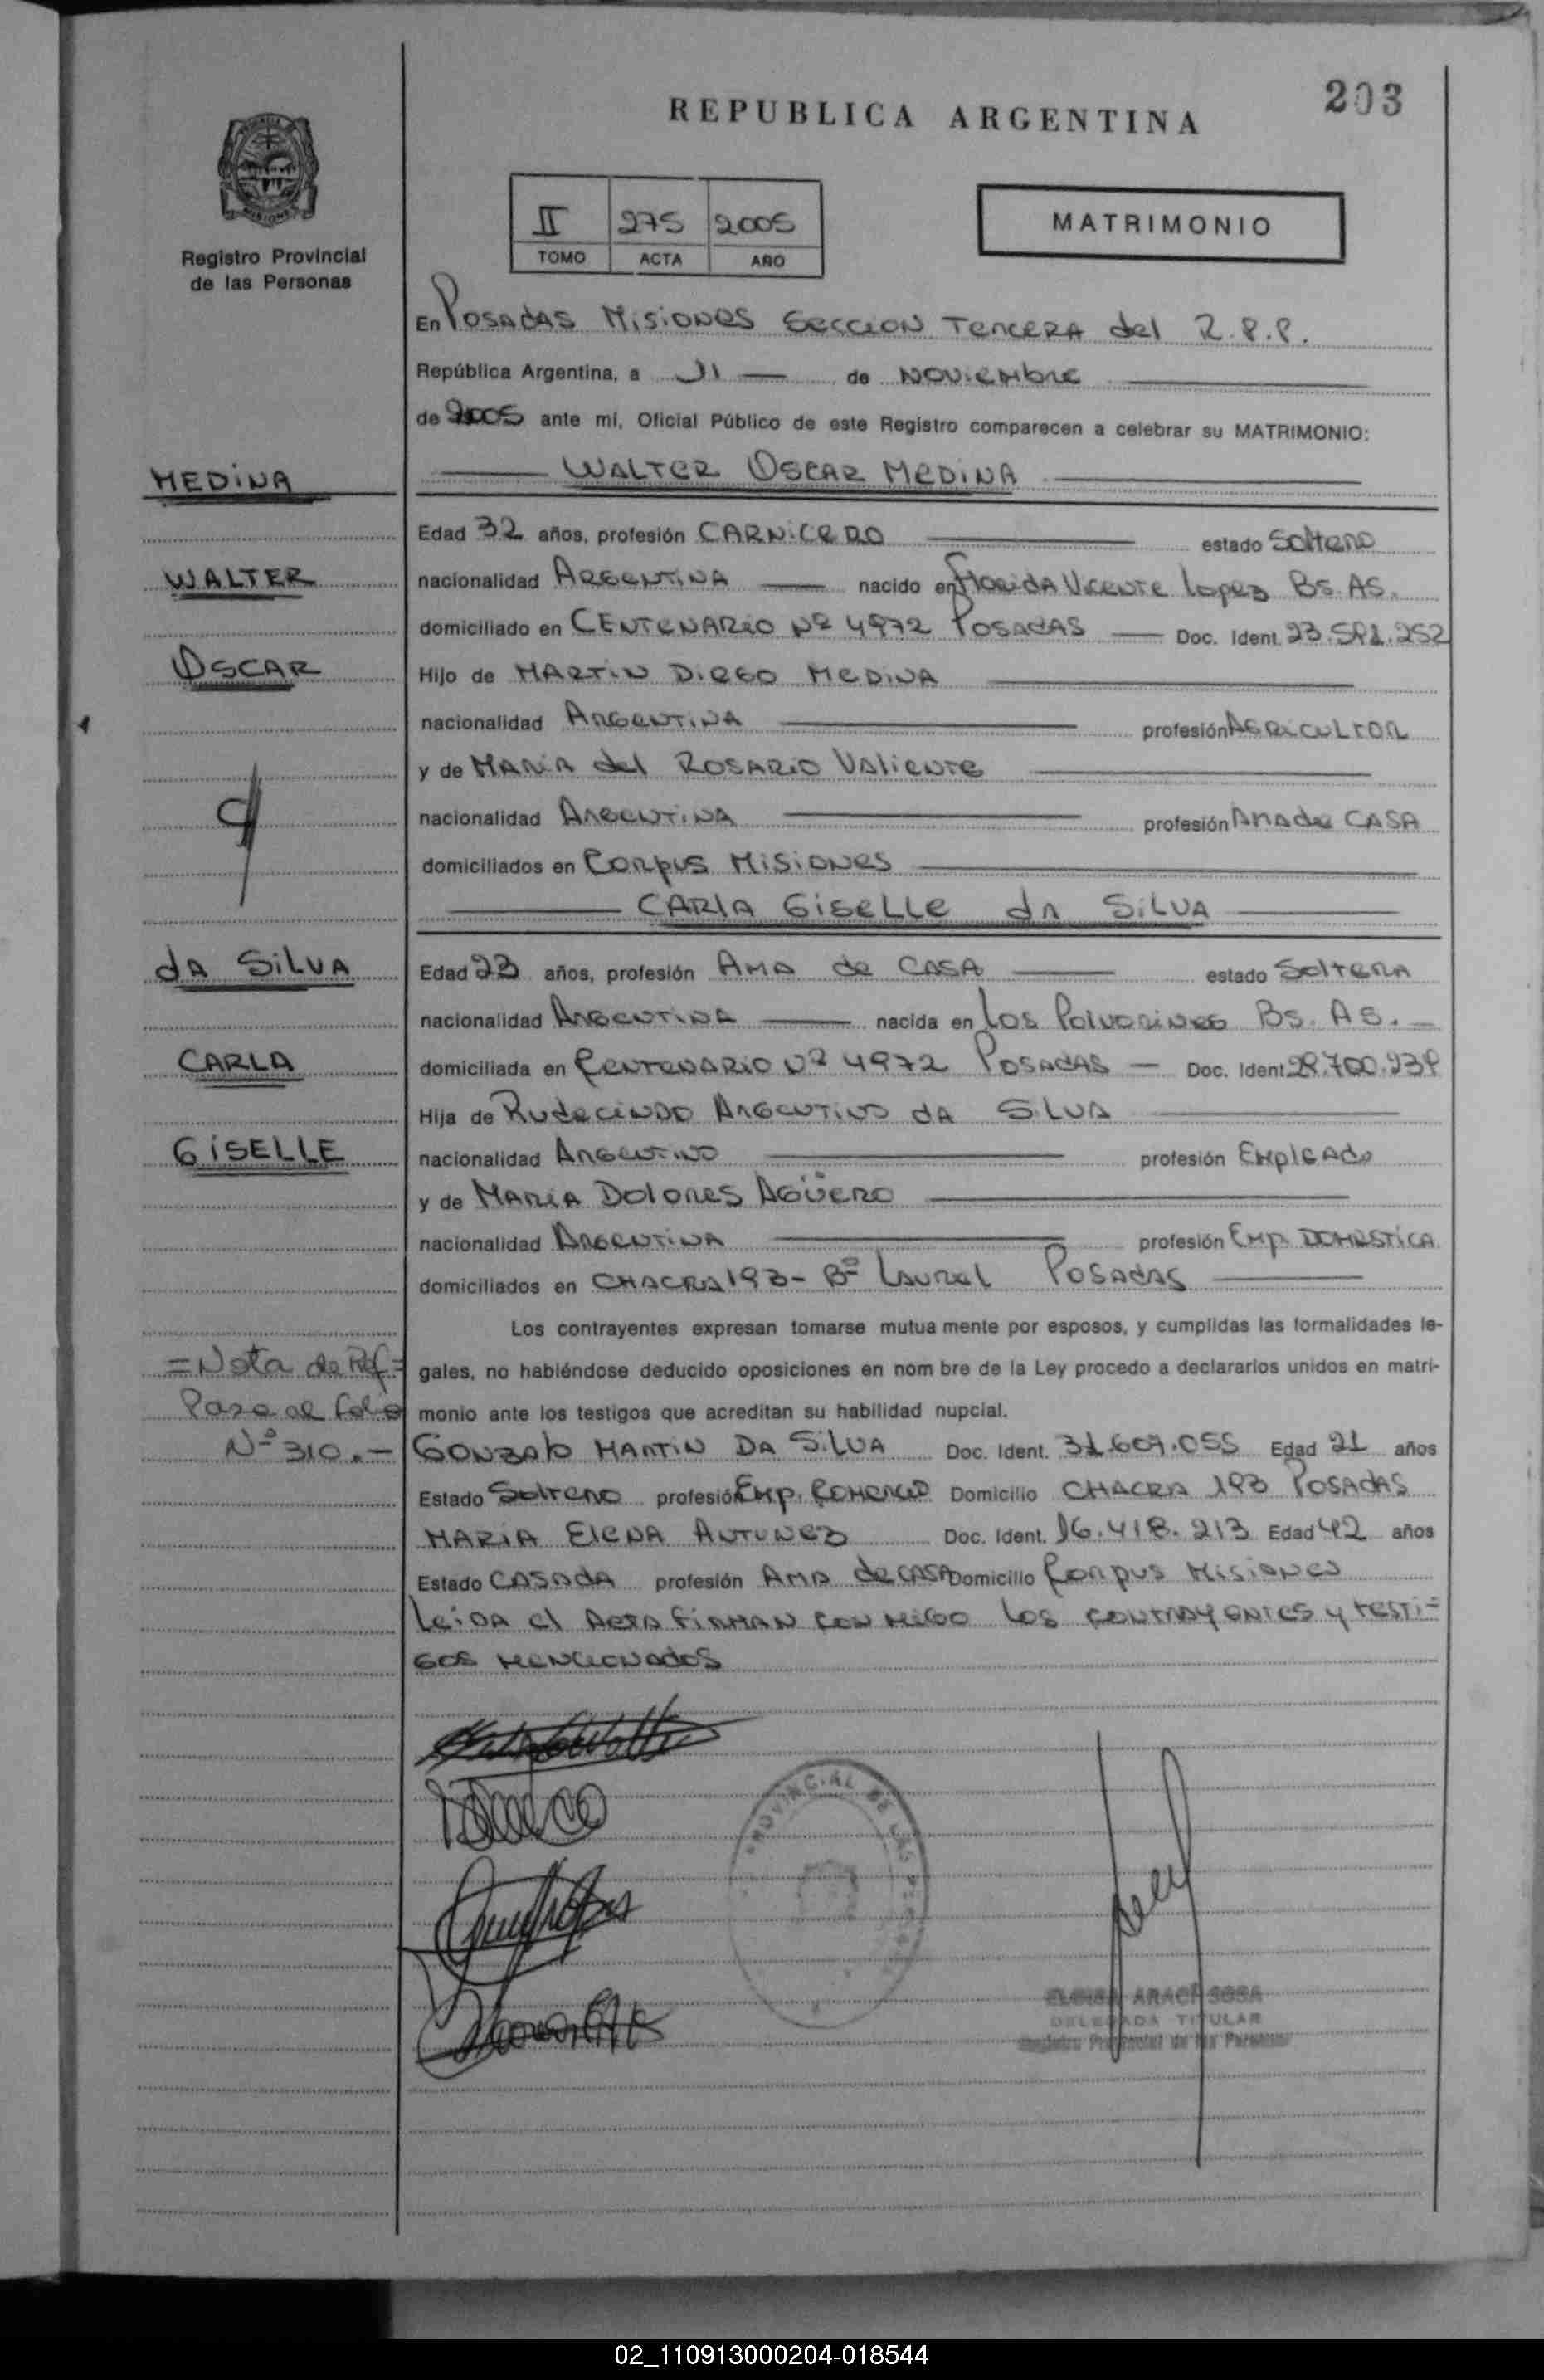 203
REPUBLICA ARGENTINA
II 275 2005
TOMO ACTA AÑO
MATRIMONIO
Registro Provincial
de las Personas
En Posadas Misiones Seccion Tercera del R.P.P.
República Argentina, a 11 — de Noviembre
de 2005 ante mí, Oficial Público de este Registro comparecen a celebrar su MATRIMONIO:
MEDINA
WALTER OSCAR MEDINA
Edad 32 años, profesión CARNICERO estado Soltero
WALTER
nacionalidad ARGENTINA — nacido en Florida Vicente Lopez Bs. AS.
domiciliado en CENTENARIO Nº 4972 POSADAS — Doc. Ident. 23.
OSCAR
Hijo de MARTIN DIEGO MEDINA
nacionalidad ARGENTINA profesión AGRICULTOR
y de MARIA del ROSARIO Valiente
nacionalidad ARGENTINA profesión AMA de CASA
domiciliados en Corpus Misiones
CARLA GISELLE da SILVA
da SILVA
Edad 23 años, profesión AMA de CASA estado Soltera
nacionalidad ARGENTINA — nacida en Los Polvorines Bs. As. —
CARLA
domiciliada en CENTENARIO Nº 4972 POSADAS — Doc. Ident.
Hija de Rudecindo Argentino da SILVA
GISELLE
nacionalidad ARGENTINO profesión Empleado
y de MARIA DOLORES AGÜERO
nacionalidad ARGENTINA profesión Emp. DOMESTICA
domiciliados en CHACRA 193 - Bº Laurel POSADAS
Los contrayentes expresan tomarse mutua mente por esposos, y cumplidas las formalidades le-
gales, no habiéndose deducido oposiciones en nom bre de la Ley procedo a declararlos unidos en matri-
monio ante los testigos que acreditan su habilidad nupcial.
=Nota de Ref=
Pase al folio
Nº 310.-
GONZALO MARTIN DA SILVA Doc. Ident. 31.609.055 Edad 21 años
Estado Soltero profesión Emp. Comercio Domicilio CHACRA 193 POSADAS
MARIA ELENA ANTUNEZ Doc. Ident. 16.418.213 Edad 42 años
Estado CASADA profesión AMA de CASA Domicilio Corpus Misiones
Leida el Acta firman con migo los contrayentes y testi=
gos mencionados
PROVINCIAL DE LAS
ARACI SOSA
DELEGADA TITULAR
Registro Provincial de las Personas
02_110913000204-018544